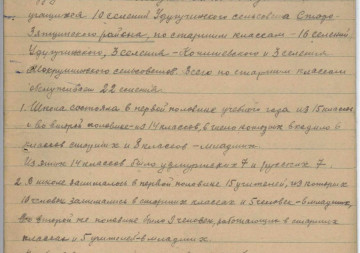 учащихся 10 селений Удугучинского сельсовета Селто-
Зятцинского района, по старшим классам - 16 селений
Удугучинского, 3 селения - и 3 селения
сельсоветов. Всего по старшим классам
22 селения.
1. Школа состояла в первой половине учебного года из 15 классов,
а во второй половине - из 14 классов, в число которых входило 6
классов старших и 8 классов - младших.
Из этих 14 классов было удмуртских 7 и русских 7.
2. В школе занималось в первой половине 15 учителей, из которых
10 человек занимались в старших классах и 5 человек - в младших,
Во второй же половине было 9 человек, работающих в старших
классах и 5 учителей - в младших.